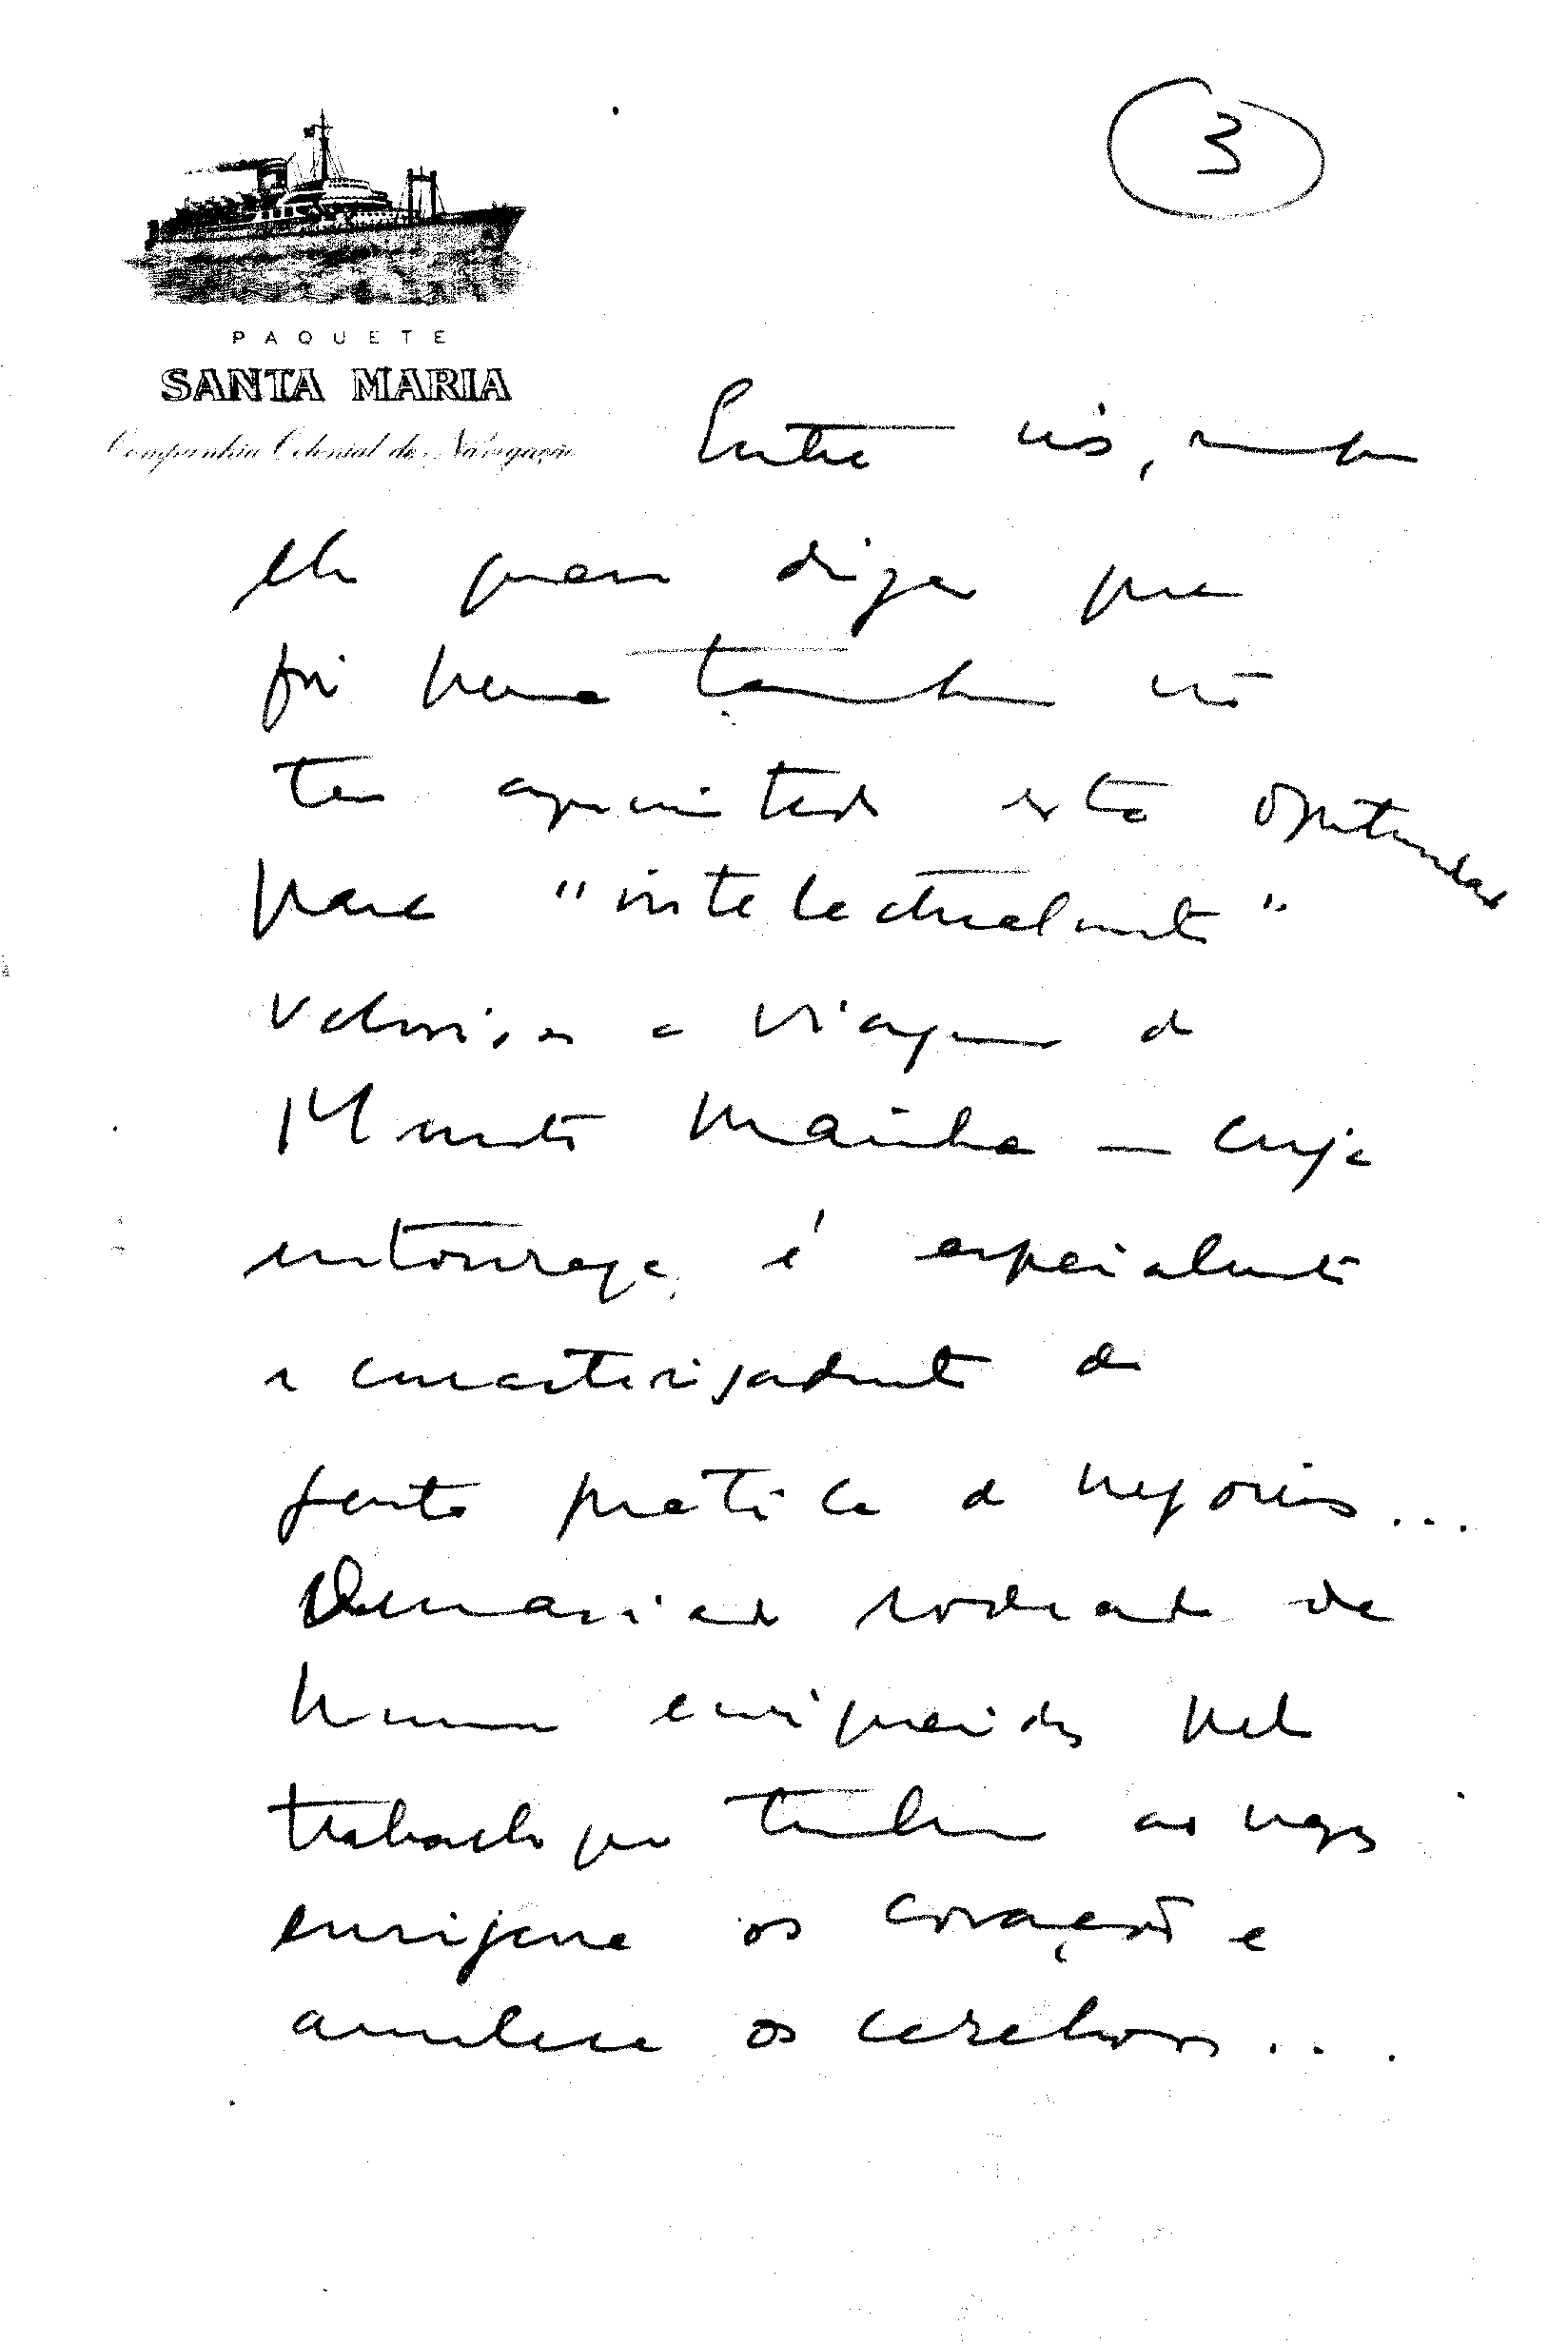 3
PAQUETE
SANTA MARIA
Companhia Colonial de Navegação
Entre nós,
quero dizer que
foi pena também não
ter aproveitado esta oportunidade
para "intelectualmente"
valorizar a viagem de
Monte Mainha — cuja
entourage é especialmente
e caracterizadamente de
gente prática de negócios...
Demasiado rodeado de
homens enriquecidos pelo
trabalho que também às vezes
enrijece os corações e
amolece os cerebros...